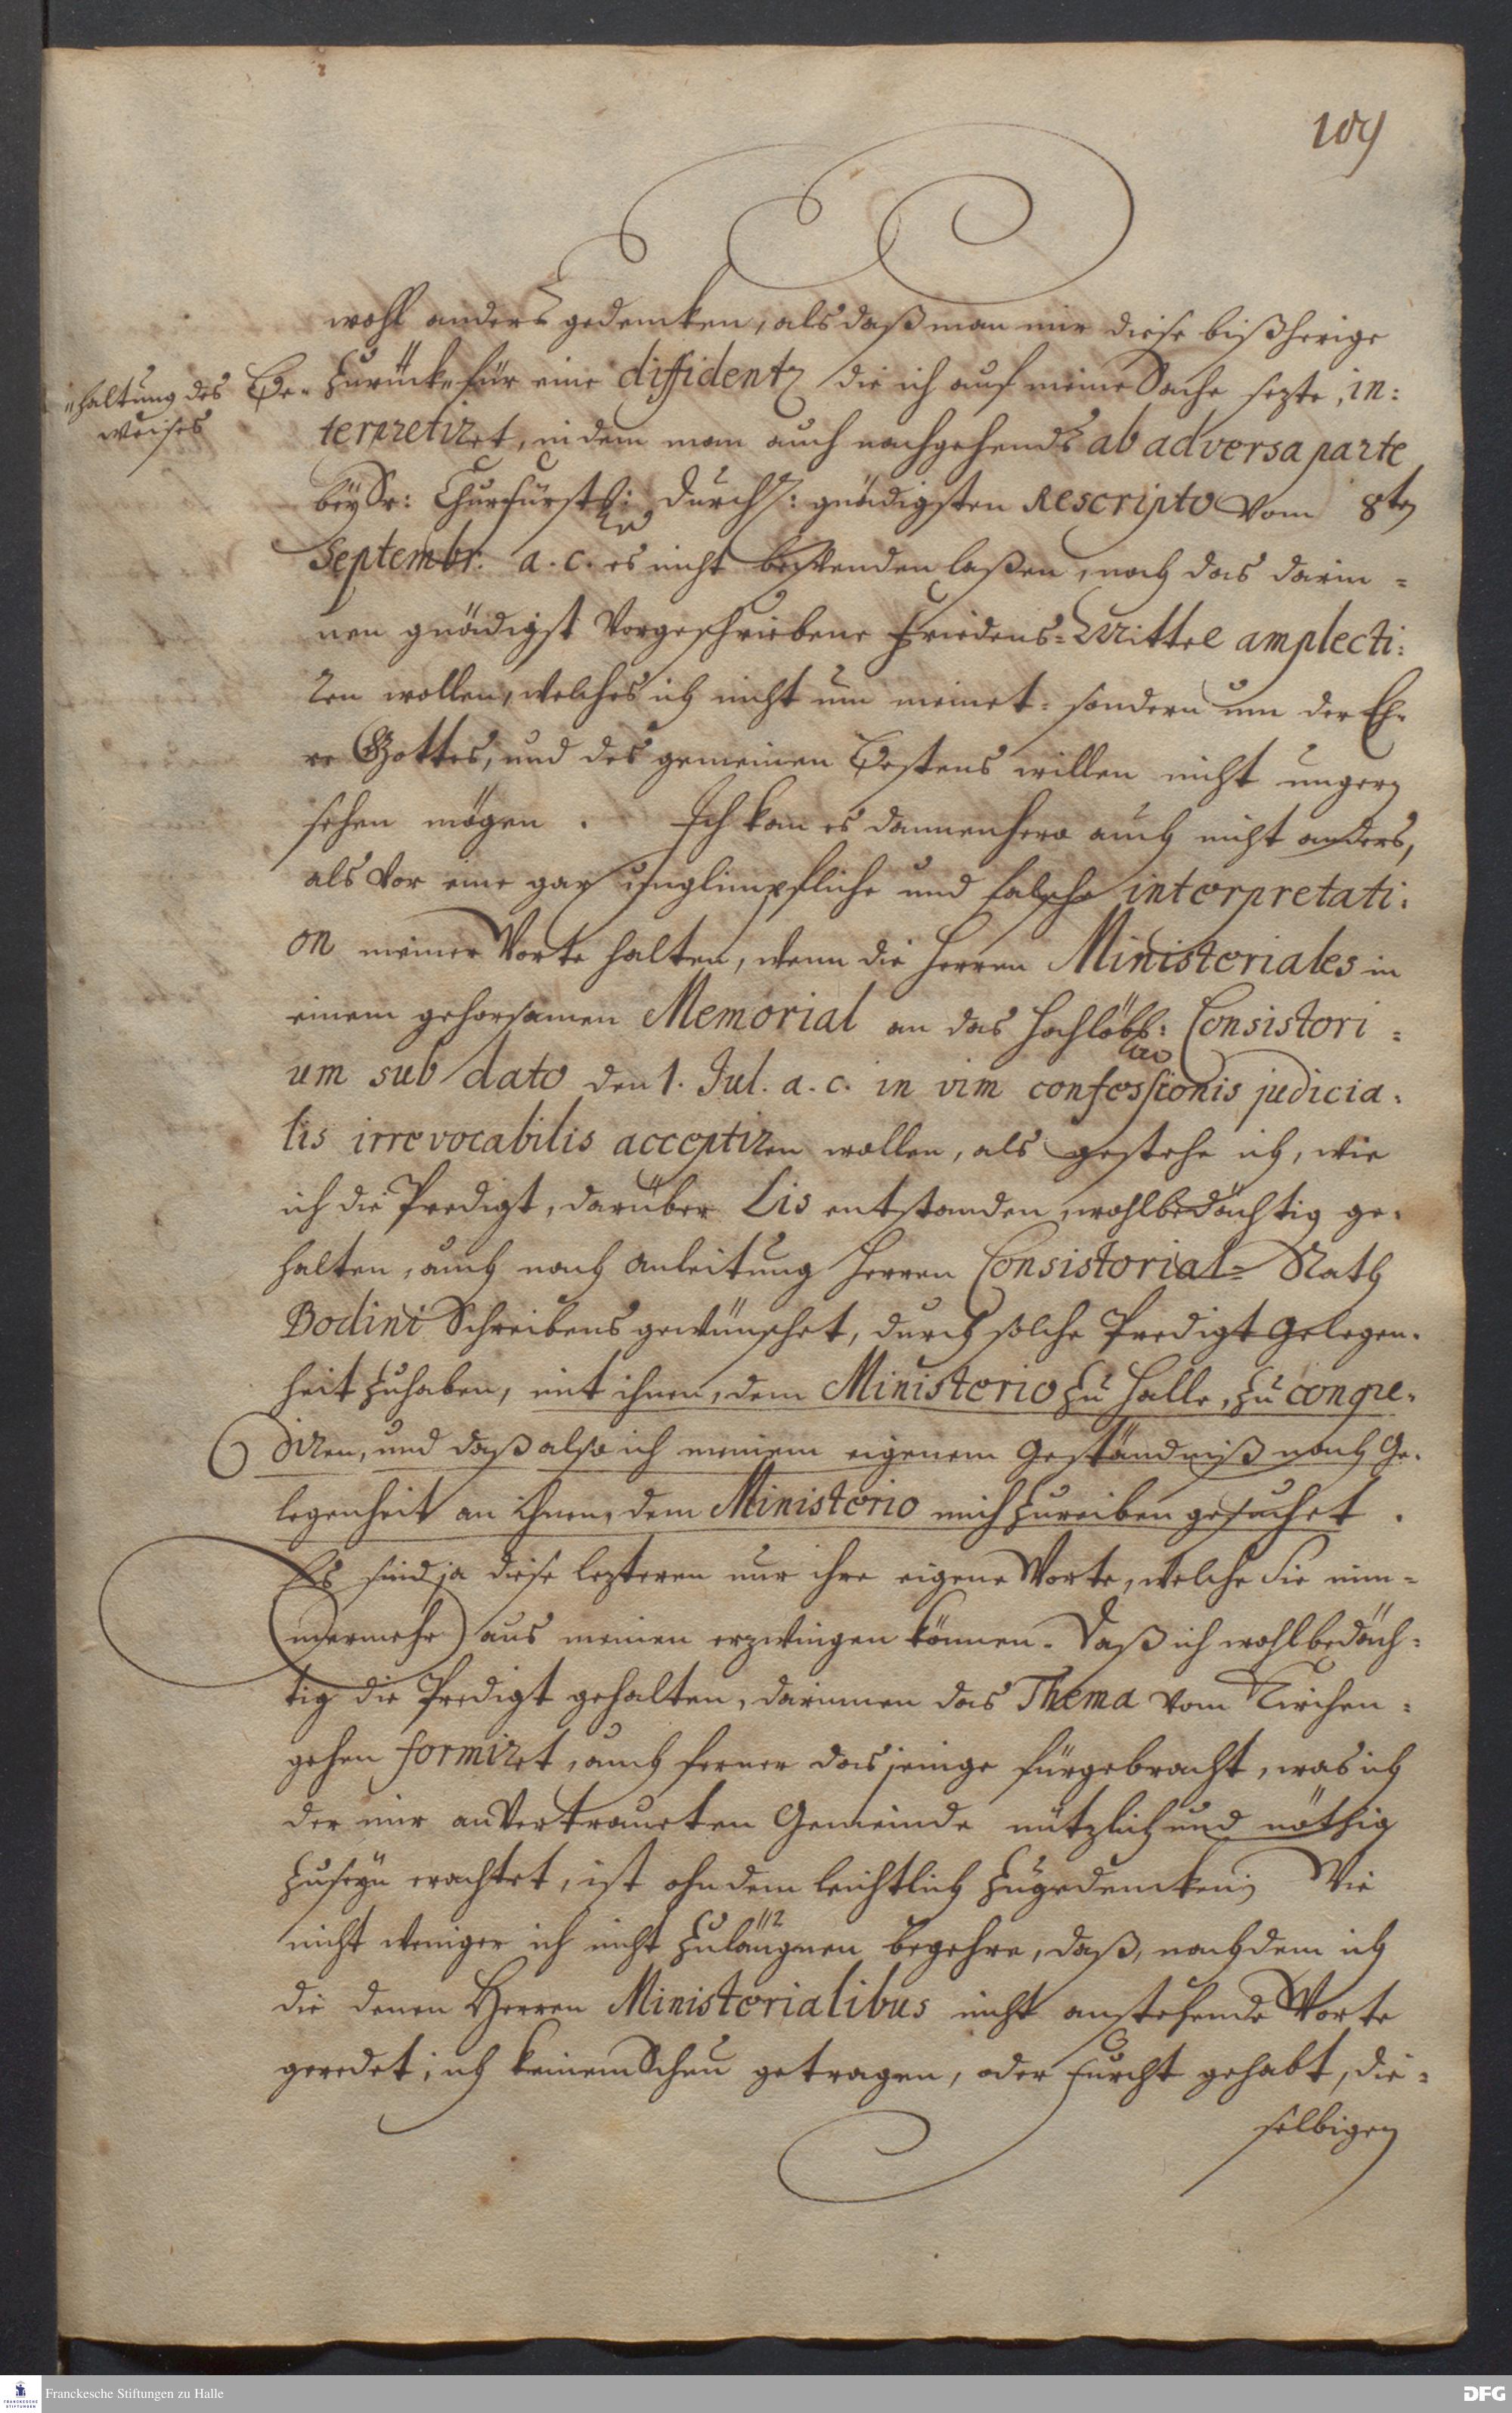 109
wohl anders gedencken, als daß man mir diese bißherige
"haltung des Be-
weises
Zurück" für eine diffidentz die ich auf meine Sache sezte, in:
terpretiret, indem man auch nachgehends ab adversa parte
bey Sr: Churfürstl: Durchl: gnädigsten Rescripto vom 8ten
Septembr. a. c. es nicht bewenden laßen, noch das darin-
nen gnädigst vorgeschriebene Friedens-Mittel amplecti:
ren wollen, welches ich nicht um meinet- sondern um der Eh-
re Gottes, und des gemeinen Bestens willen nicht ungern
sehen mögen. Ich kan es dannenhero auch nicht anders,
als vor eine gar unglimpfliche und falsche interpretati:
on meiner Worte halten, wenn die Herren Ministeriales in
einem gehorsamen Memorial an das Hochlöbl: Consistori-
um sub dato den 1. Jul. a. c. in vim confessionis judicia:
lis irrevocabilis acceptiren wollen, als gestehe ich, wie
ich die Predigt, darüber Lis entstanden, wohlbedächtig ge-
halten, auch nach Anleitung Herren Consistorial-Rath
Bodini Schreibens gewünschet, durch solche Predigt Gelegen-
heit zuhaben, mit ihnen, dem Ministerio zu Halle, zu congre-
diren, und daß also ich meinem eigenem Geständniß nach Ge-
legenheit an ihnen, dem Ministerio mich zureiben gesuchet.
Es sind ja diese lezteren nur ihre eigene Worte, welche Sie nim-
mermehr aus meinen erzwingen können. Daß ich wohlbedäch-
tig die Predigt gehalten, darinnen das Thema vom Kirchen-
gehen formiret, auch ferner dasjenige fürgebracht, was ich
der mir anvertraueten Gemeinde nützlich und nöthig
zuseyn erachtet, ist ohn dem leichtlich zugedencken; Wie
nicht weniger ich nicht zuläugnen begehre, daß, nachdem ich
die denen Herren Ministerialibus nicht anstehende Worte
geredet, ich keinem Scheu getragen, oder Furcht gehabt, die-
selbigen
Franckesche Stiftungen zu Halle
DFG